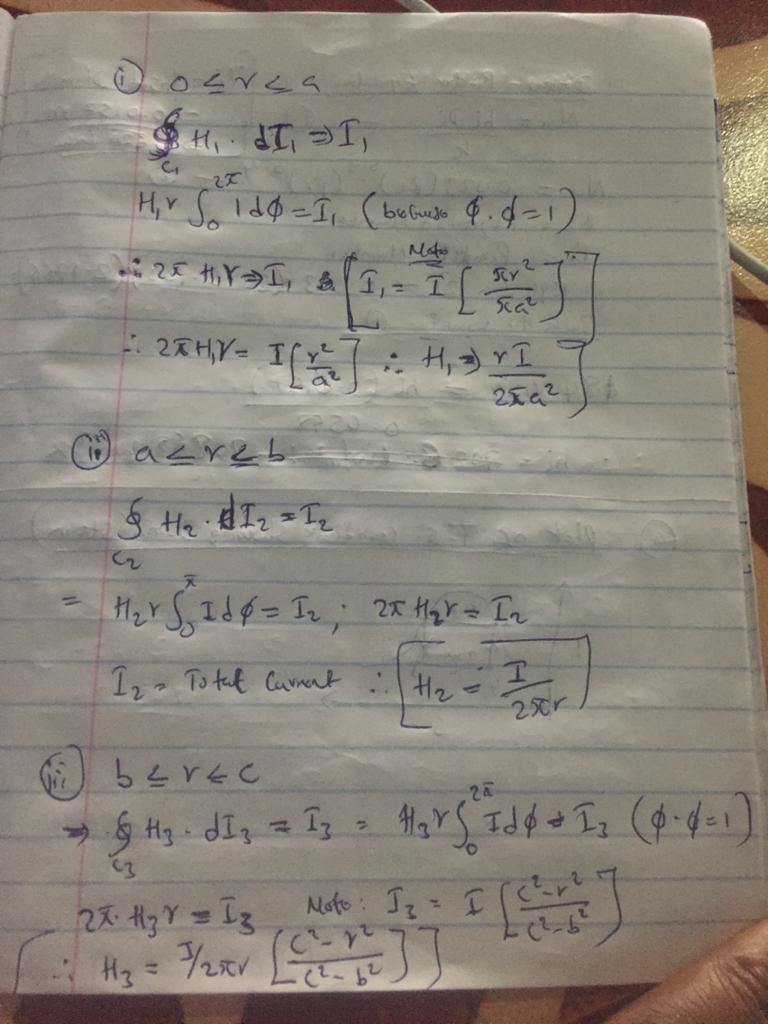 i) 0 ≤ r ≤ a
∮C₁ H₁ · dI₁ ⇒ I₁
H₁r ∫₀^2π 1dϕ = I₁ (because ϕ · ϕ = 1)
∴ 2π H₁r ⇒ I₁ [Note I₁ = I [πr²/πa²]]
∴ 2πH₁r = I[r²/a²] ∴ H₁ ⇒ rI/2πa²]
ii) a ≤ r ≤ b
∮C₂ H₂ · dI₂ = I₂
= H₂r ∫₀^π Idϕ = I₂ ; 2π H₂r = I₂
I₂ = Total Current ∴ [H₂ = I/2πr]
iii) b ≤ r ≤ c
⇒ ∮C₃ H₃ · dI₃ = I₃ = H₃r ∫₀^2π Idϕ = I₃ (ϕ · ϕ = 1)
2π · H₃r = I₃ Note: I₃ = I [c²-r²/c²-b²]
[∴ H₃ = I/2πr [c²-r²/c²-b²]]